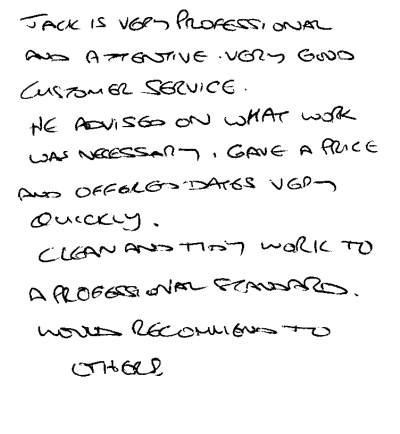 JACK IS VERY PROFESSIONAL
AND ATTENTIVE. VERY GOOD
CUSTOMER SERVICE.
HE ADVISED ON WHAT WORK
WAS NECESSARY, GAVE A PRICE
AND OFFERED DATES VERY
QUICKLY.
CLEAN AND TIDY WORK TO
A PROFESSIONAL STANDARD.
WOULD RECOMMEND TO
OTHERS